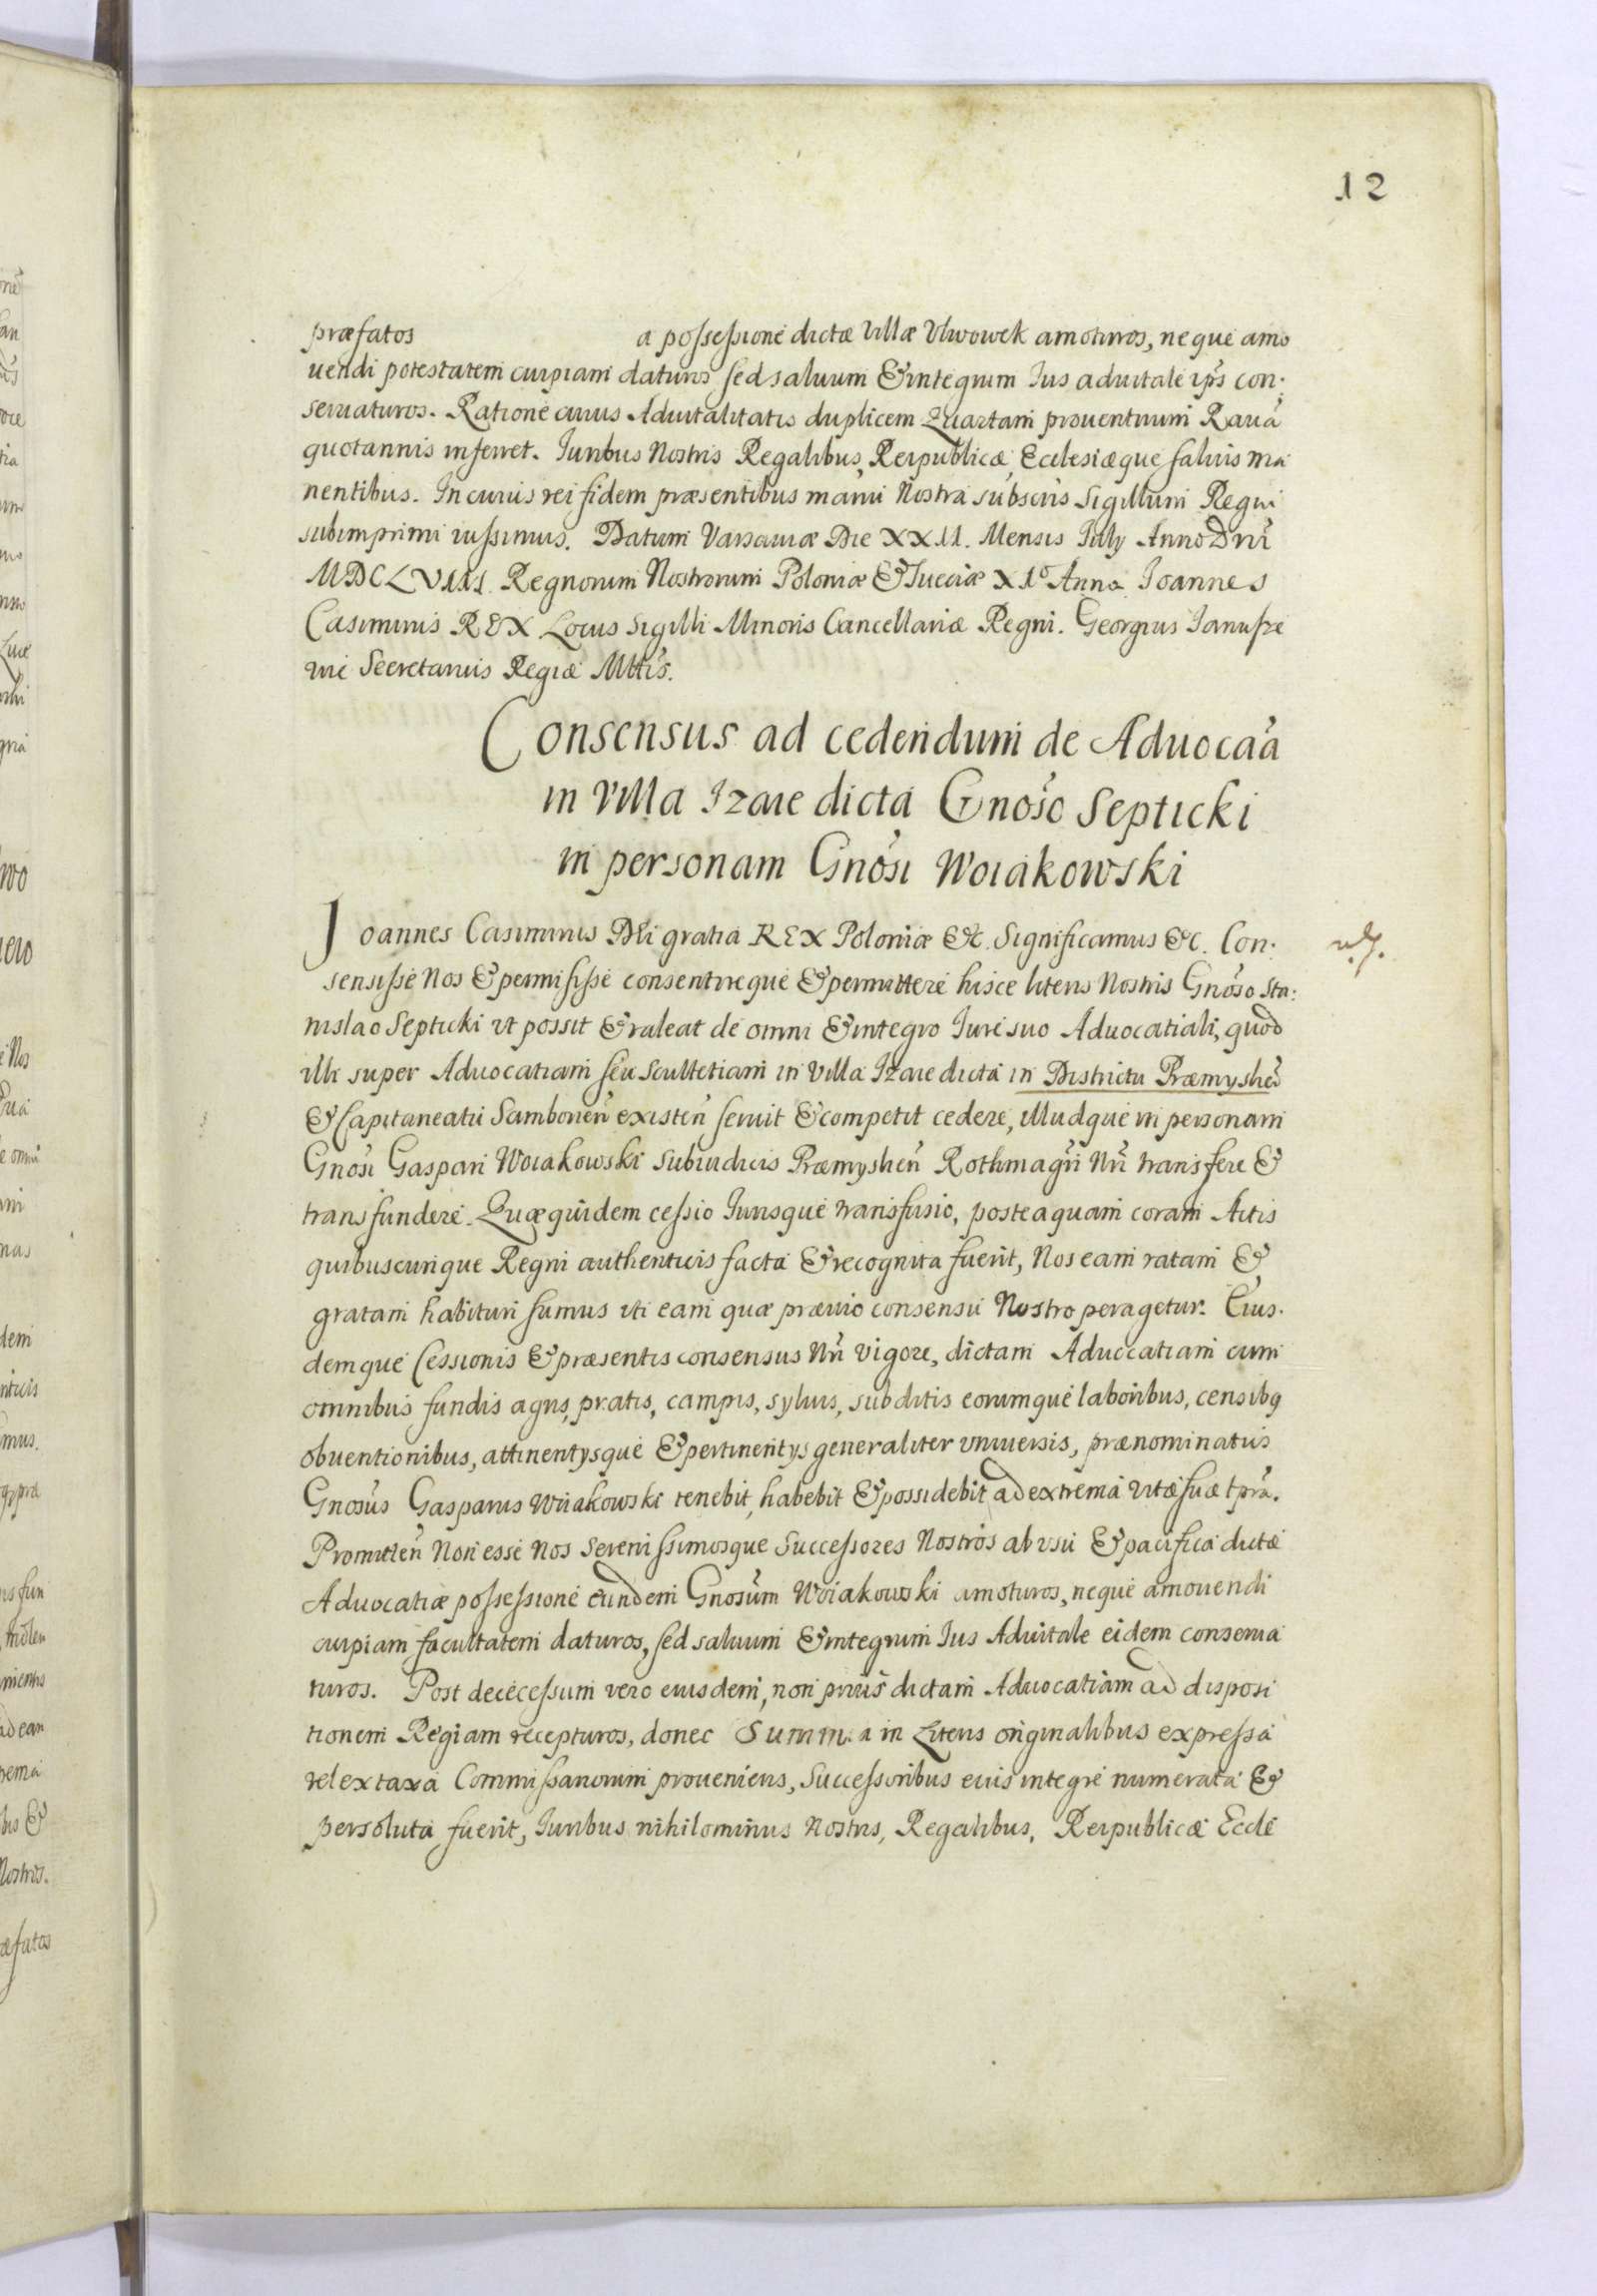 12
præfatos a possessione dictæ Villæ Vlwowek amoturos, neque amo
uendi potestatem cuipiam daturos sed saluum & integrum Ius aduitale ips̃ con:
seruaturos. Ratione cuius Aduitalitatis duplicem Quartam prouentuum Rauã
quotannis inferret. Iuribus Nostris Regalibus, Reipublicæ, Ecclesiæque saluis ma
nentibus. In cuius rei fidem præsentibus manu Nostra subscris Sigillum Regni
subimprimi iussimus. Datum Varsauiæ Die XXII. Mensis Iuly Anno Dnĩ
MDCLVIII. Regnorum Nostrorum Poloniæ & Sueciæ X Iº Anno Ioannes
Casimirus REX Locus Sigilli Minoris Cancellariæ Regni. Georgius Ianusze
wic Secretarius Regiæ Mttis.
Consensus ad cedendum de Aduocãa
in Villa Izaie dicta Gnoso Septicki
in personam Gnosi Woiakowski
Ioannes Casimirus Dei gratia REX Poloniæ &c. Significamus &c. Con:
sensisse Nos & permisisse consentireque & permittere hisce literis Nostris Gnoso Sta:
nislao Septicki vt possit & valeat de omni & integro Iure suo Aduocatiali, quod
illi super Aduocatiam seu Scultetiam in Villa Izaie dicta in Districtu Præmyslieñ
& Capitaneatu Samborieñ existeñ seruit & competit cedere, illudque in personam
Gnosi Gaspari Woiakowski Subiudicis Præmyslieñ Rothmagri Nri transfere &
transfundere. Quæquidem cessio Iurisque transfusio, posteaquam coram Actis
quibuscunque Regni authenticis facta & recognita fuerit, Nos eam ratam &
gratam habituri sumus vti eam quæ præuio consensu Nostro peragetur. Eius.
demque Cessionis & præsentis consensus Nri vigore, dictam Aduocatiam cum
omnibus fundis agris, pratis, campis, syluis, subditis eorumque laboribus, censibq
obuentionibus, attinentysque & pertinentys generaliter vniuersis, prænominatus
Gnosus Gasparus Woiakowski tenebit, habebit & possidebit ad extrema vitæ suæ tpra.
Promitteñ Non esse Nos Serenissimosque Successores Nostros ab vsu & pacifica dictæ
Aduocatiæ possessione eundem Gnosum Woiakowski amoturos, neque amouendi
cuipiam facultatem daturos, sed saluum & integrum Ius Aduitale eidem conserua
turos. Post dececessum vero eiusdem, non prius dictam Aduocatiam ad disposi
tionem Regiam recepturos, donec Summa in Literis originalibus expressa
vel ex taxa Commissariorum proueniens, Successoribus eius integre numerata &
persoluta fuerit, Iuribus nihilominus Nostris, Regalibus, Reipublicæ Eccle